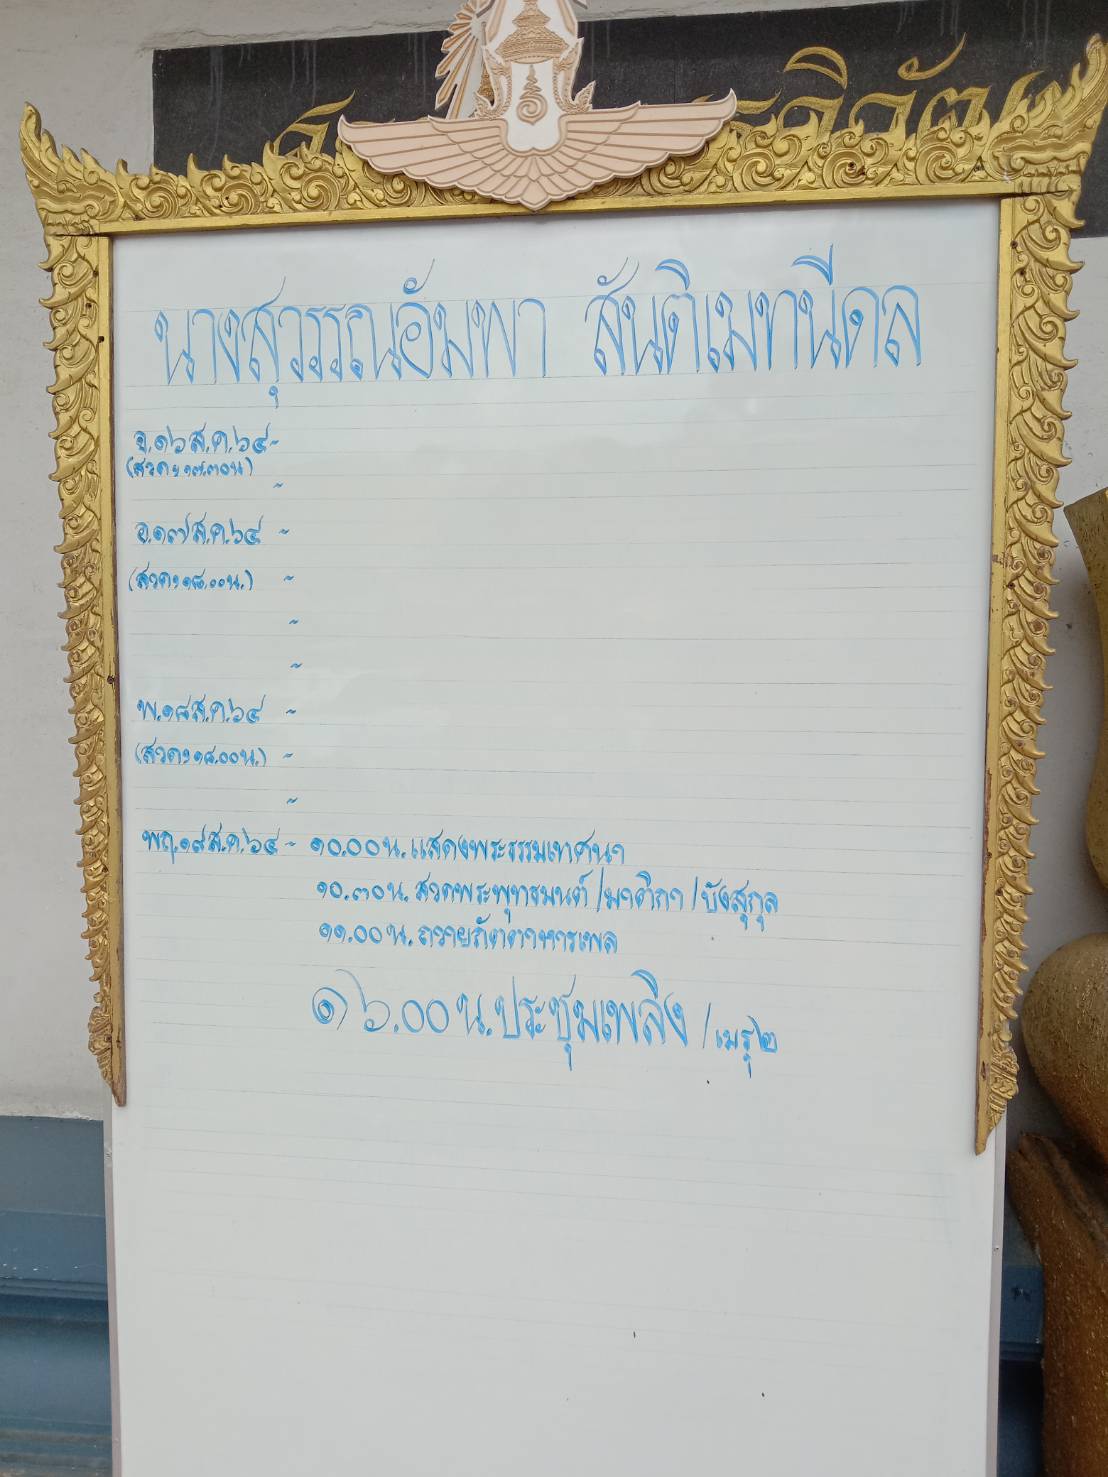 นางสุวรรณอัมพา สันติเมทนีดล
จ.๑๖ ส.ค.๖๔ -
(สวดฯ ๑๗.๓๐น)
-
อ.๑๗ ส.ค.๖๔ -
(สวดฯ ๑๘.๐๐น.) -
-
-
พ.๑๘ ส.ค.๖๔ -
(สวดฯ ๑๘.๐๐น.) -
-
พฤ.๑๙ ส.ค.๖๔ - ๑๐.๐๐น.แสดงพระธรรมเทศนา
๑๐.๓๐น. สวดพระพุทธมนต์ /มาติกา /บังสุกุล
๑๑.๐๐น. ถวายภัตตาหารเพล
๑๖.๐๐น.ประชุมเพลิง / เมรุ ๒